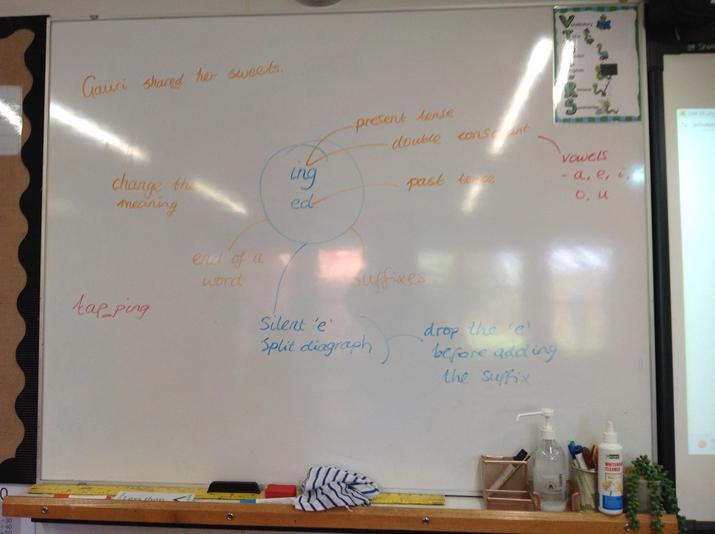 Gauri shared her sweets.
present tense
double consonant
vowels
- a, e, i,
o, u
ing
ed
past tense
change the
meaning
end of a
word
suffixes
tap_ping
Silent 'e'
Split diagraph
drop the 'e'
before adding
the suffix
V
I
E
R
S
WHITEBOARD
CLEANER
Less than <